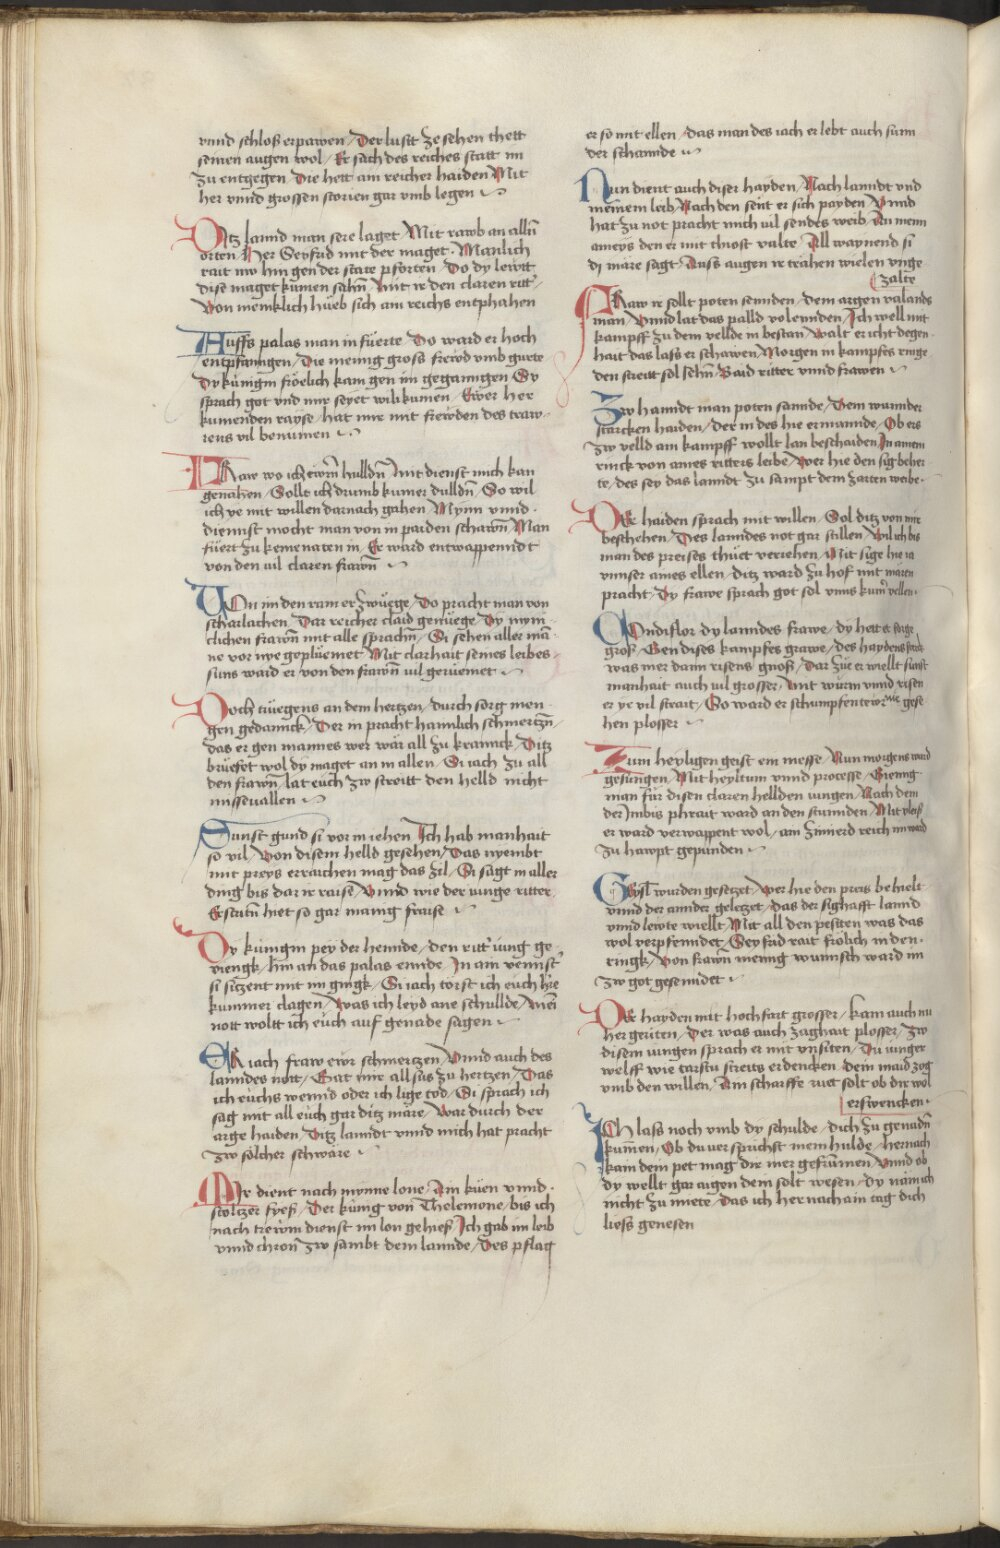 vnnd schloß erpawen / Der lustt ze sehen thett
seinen augen wol / Er sach des reiches statt im
zu entgegen / Die hett ain reicher haiden Mit
her vnnd grossen storien gar vmb legen
Ditz lannd man sere laget / Mit rawb an alln̄
orten / Her Seyfrid mit der maget / Manlich
rait mo hin gen der statt pforten / Do dy lewtt
dise maget kumen sahn̄ / Mit ir den claren ritt'
Von menklich hueb sich ain reichs entphahen
Auffs palas man in fuerte / Do ward er hoch
entpfanngen / Die menig gross frewd vmb guete
Dy künigin froelich kam gen im geganngen / Sy
sprach got vnd mir seyet wilikumen / Ewer her
kumenden rayse / hat mir mit frewden des traw-
rens vil benumen
Fraw wo ich ewrn̄ hulldn̄ / mit dienst mich kan
genahen / Sollt ich drumb kumer dulldn̄ / So wil
ich ye mit willen darnach gahen / Mynn vnnd
diennst mocht man von in paiden schawn̄ / Man
füert zu kemenaten in / Er ward entwappenndt
von den vil claren frawn̄
Von im den ram er zwuege / Do pracht man von
scharlachen / Dar reicher claid genuege / Dy myn-
clichen frawn̄ mit alle sprachn̄ / Si sehen aller man-
ne vor nye geplüemet / Mit clarhait seines leibes
suns ward er von den frawn̄ vil gerüemet
Doch tuegens an dem hertzen / durch sorg men-
gen gedannck / Der in pracht haimlich schmertzn̄ /
das er gen mannes wer wär all zu krannck / Ditz
brüefet wol dy maget an in allen / Si iach zu all
den frawn̄ / lat euch zw streitt den helld nicht
missuallen
Sunst gund si vor in iehen / Ich hab manhait
so vil / Von disem helld gesehen / Das nyembt
mit preys erraichen mag das zil / Si sagt in aller
ding bis dar ir raise / Vnnd wie der iunge ritter
Erstattn̄ hiet so gar manig fraise
Dy künigin pey der hennde / den ritt' iung ge-
viengk / hin an das palas ennde / In ain vennst'
si sitzent mit im gingk / Si iach törst ich euch hye
kummer clagen / Was ich leyd ane schullde / mein
nott wollt ich euch auf genade sagen
Er iach fraw ewr schmertzen / Vnnd auch des
lanndes nott / Gat mir all sus zu hertzen / Das
ich euchs wennd oder ich lige tod / Si sprach ich
sag mit all euch gar ditz märe / War durch der
arge haiden / Ditz lanndt vnnd mich hat pracht
zw sölcher schwäre
Mir dient nach mynne lone / Ain küen vnnd
stoltzer fyess / Der künig von Thelemone / bis ich
nach trewm dienst im lon gehiess / Ich gab im leib
vnnd chron̄ zw sambt dem lannde / Des pflag
er so mit ellen / das man des iach er lebt auch sunn
der schannde
Nun dient auch diser hayden / Nach lanndt vnd
meinem leib / Nach den seit er sich payden / Vnnd
hat zu not pracht mich vil sendes weib / An mein
ameys den er mit thiost valte / All waynend si
di märe sagt / Auss augen ir trähen wielen vnge
zalte
Fraw ir sollt poten sennden / dem argen valands
man / Vnnd lat das palld volennden / Ich well mit
kampff zu dem vellde in bestan / Walt er icht degen
hait das lass er schawen / Morgen in kampfes ringe
den streitt sol sehn̄ / Baid ritter vnnd frawen
Zw hanndt man poten sannde / Dem wunnder
starcken haiden / der in des hie ermannde / Ob ers
zw velld ain kampff wollt lan beschaiden / In ainem
rinck von aines ritters leibe / Wer hie den sig beher
te / des sey das lanndt zu sampt dem zarten weibe
Der haiden sprach mit willen / Sol ditz von mir
beschehen / Des lanndes not gar stillen / Wil ich bis
man des preises thuet veriehen / Mit sige hie ia
vnnser aines ellen / ditz ward zu hof mit mären
pracht / Dy frawe sprach got sol vnns kum' vellen
Condiflor dy lanndes frawe / dy hett et sorge
gros / Gen dises kampfes grawe / des haydens sterck
was mer dann risens gnoss / Dar zue er wiellt sunst
manhait auch vil grosser / Mit wurm vnnd risen
er ye vil strait / So ward er schumpfentewr nye gese
hen plosser
Zum heyligen geist ein messe / Nun morgens ward
gesungen / Mit heyltum vnnd processe / Gienng
man für disen claren hellden iungen / Nach dem
der Imbis phrait ward an den stunnden / Mit vleiss
er ward verwappent wol / ain zimierd reich im ward
zu hawpt gepunden
Gysl wurden gesetzet / Wer hie den preis behielt
vnnd der annder geletzet / das der sighafft lannd
vnnd lewte wiellt / Mit all den pesten was das
wol verpfenndet / Seyfrid rait frölich in den
ringk / Von frawn̄ menig wunnsch ward im
zw got gesenndet
Der hayden mit hochfart grosser / kam auch nu
her geriten / Der was auch zaghait plosser / zw
disem iungen sprach er mit vnsiten / Du iunger
welff wie tarstu streits erdencken / dem maid zog
vmb den willen / Ain scharffe ruet solt ob dir wol
erswencken
Ich lass noch vmb dy schulde / dich zu genadn̄
kumen / Ob du versprichst mein hulde / hernach
kain dem pet mag dir mer gefrumen / Vnnd ob
dy wellt gar aigen dein solt wesen / dy nam ich
nicht zu miete / das ich her nach ain tag dich
liess genesen